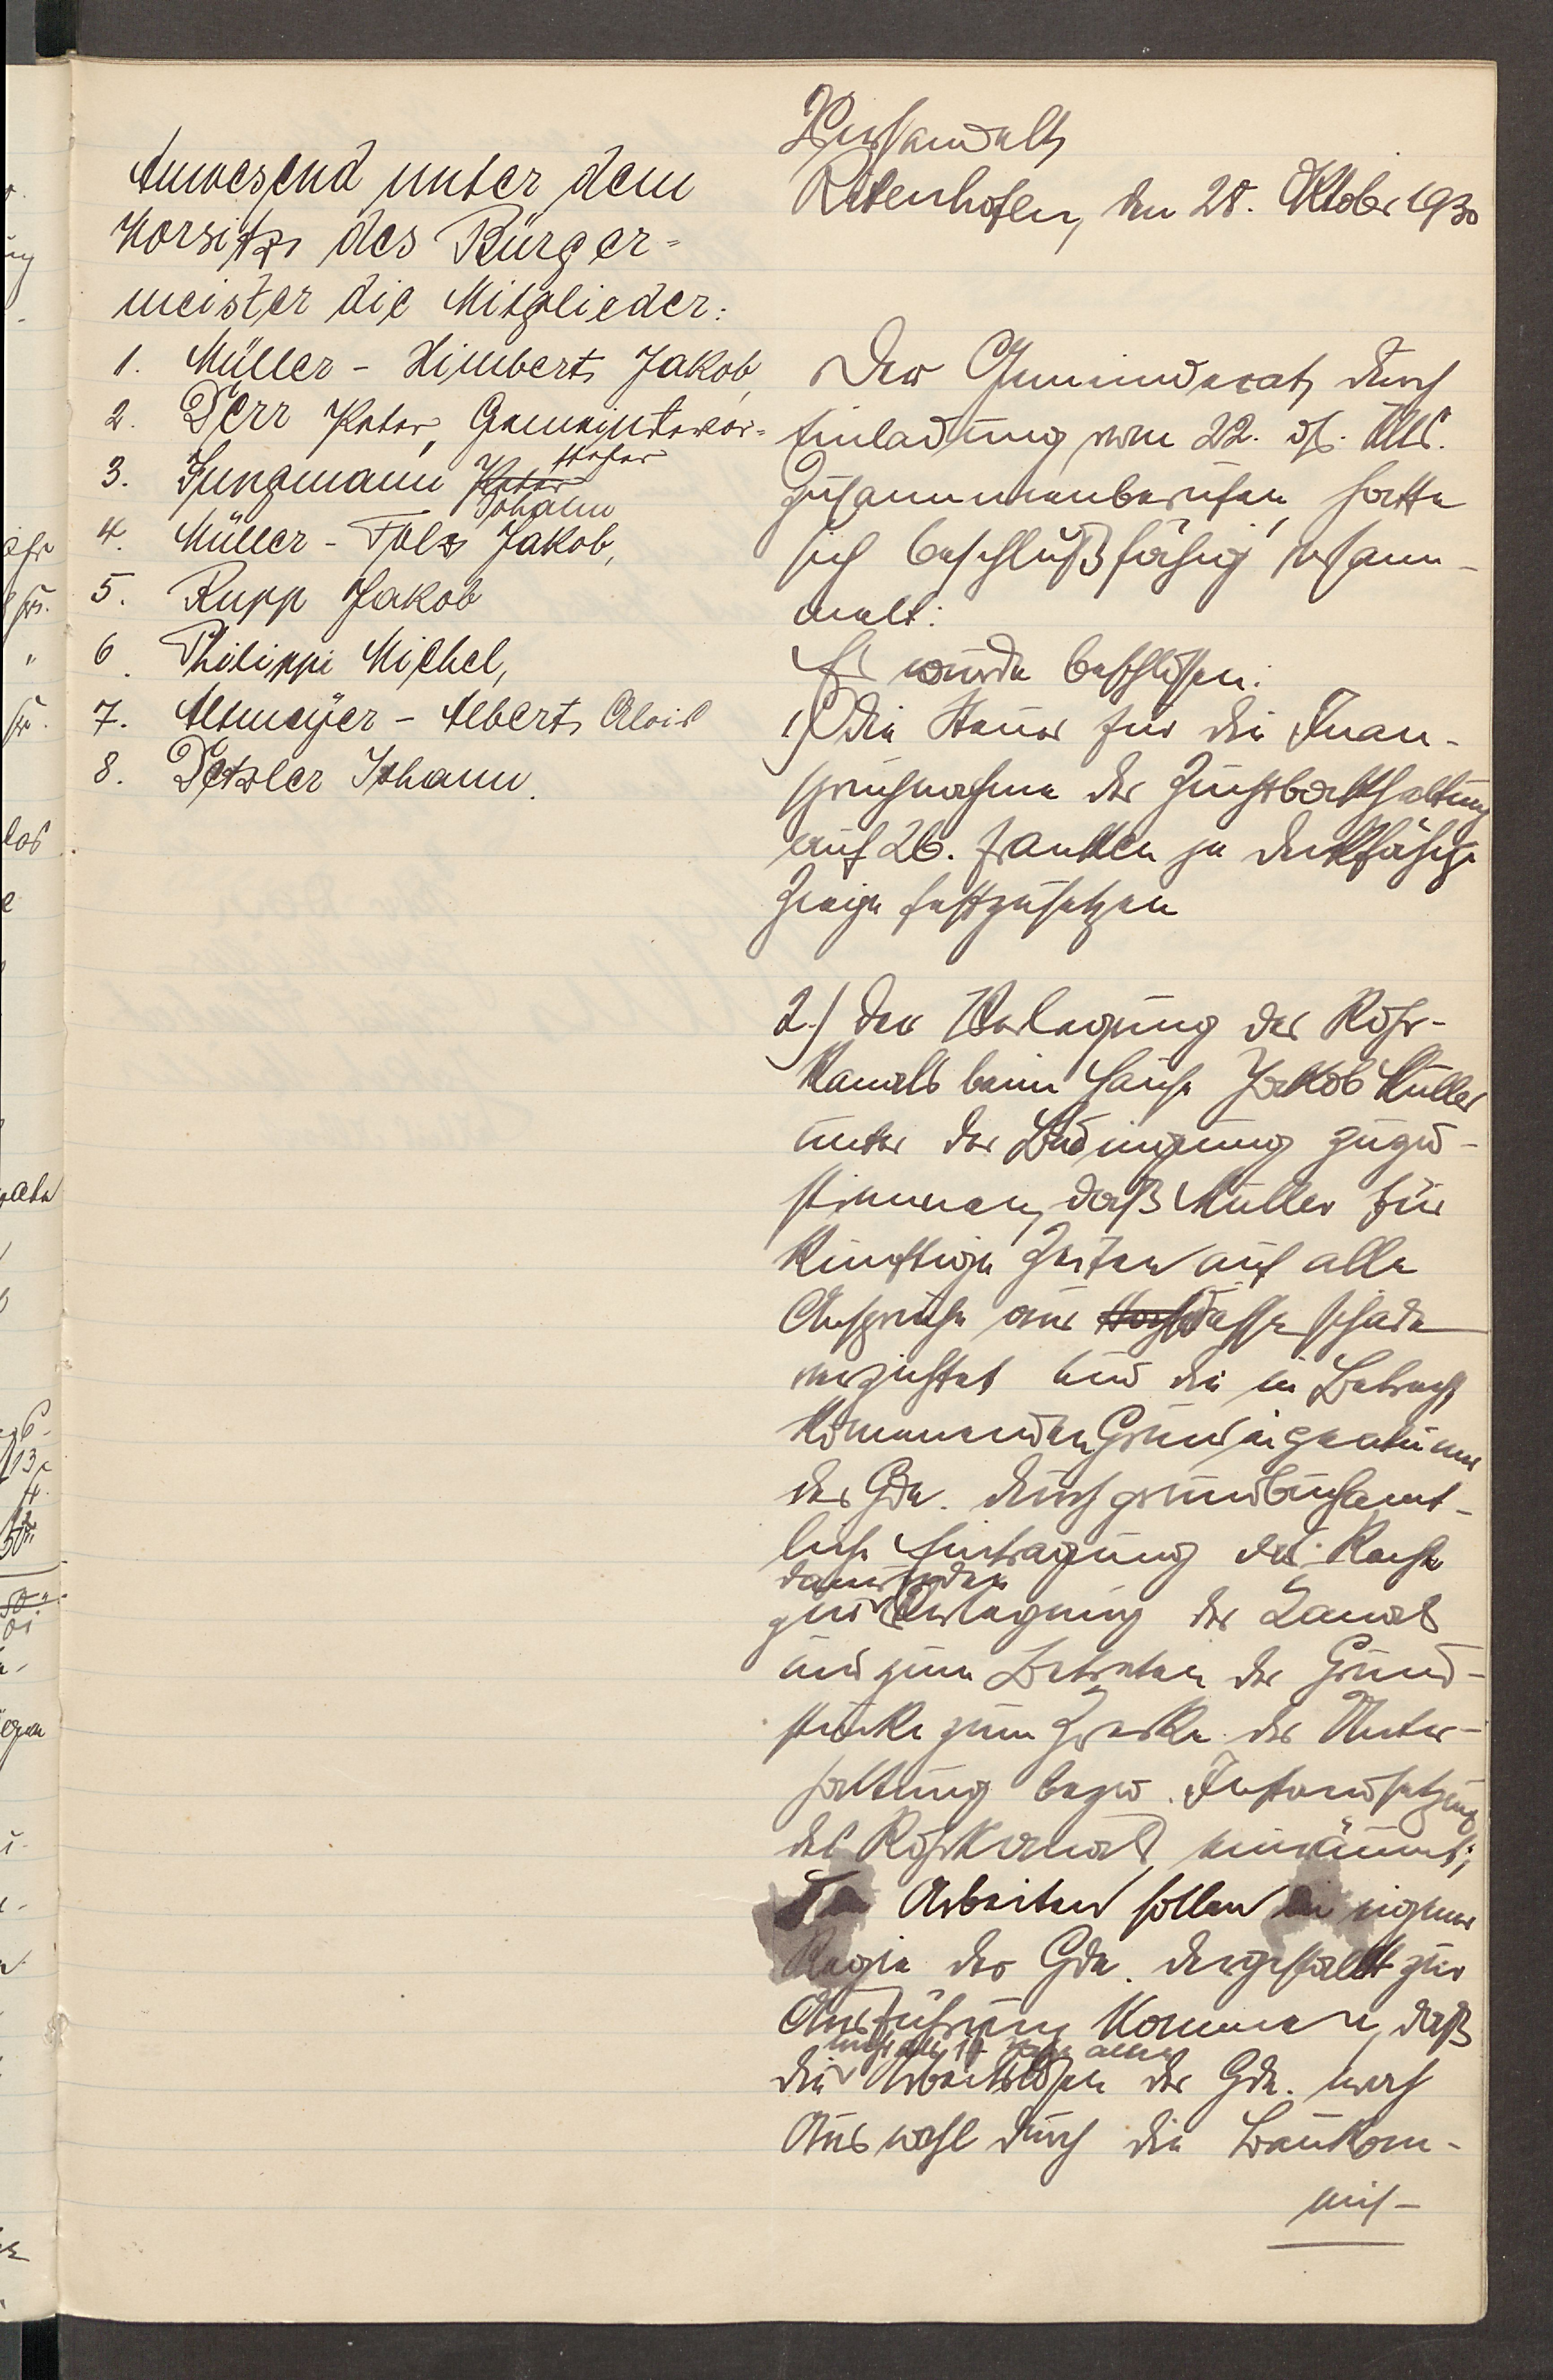 Anwesend unter dem
Vorsitze des Bürger-
meister die Mitglieder:
1. Müller - Himbert Jakob,
2. Derr Peter, Gemeindevor-
steher
3. Jungmann Peter
Johann
4. Müller - Folz Jakob,
5. Rupp Jakob
6. Philippi Michel,
7. Altmeyer - Albert Alois
8. Detzler Johann.
Verhandelt
Rittenhofen, den 28. Oktober 1930
Der Gemeinderat, durch
Einladung vom 22. ds. Mts.
zusammenberufen, hatte
sich beschlußfähig versam-
melt:
Es wurde beschlossen:
1) Die Steuer für die Inan-
spruchnahme der Zuchtbockhaltung
auf 26. Franken je deckfähige
Ziege festzusetzen
2.) Der Verlegung des Rohr-
kanals beim Hause Jakob Müller
unter der Bedingung zuzu-
stimmen, daß Müller für
künftige Zeiten auf alle
Ansprüche aus Wasserschäden
verzichtet und die in Betracht
kommenden Grundeigentümer
der Gde. durch grundbuchamt-
liche Eintragung das Recht
dauernden
zur Verlegung des Kanals
und zum Betreten der Grund-
stücke zum Zwecke der Unter-
haltung bezw. Instandsetzung
des Rohrkanals einräumt;
Die Arbeiten sollen in eigener
Regie der Gde. dergestalt zur
Ausführung kommen, daß
die Arbeitslosen der Gde. nach
Auswahl durch die Baukom-
mis-